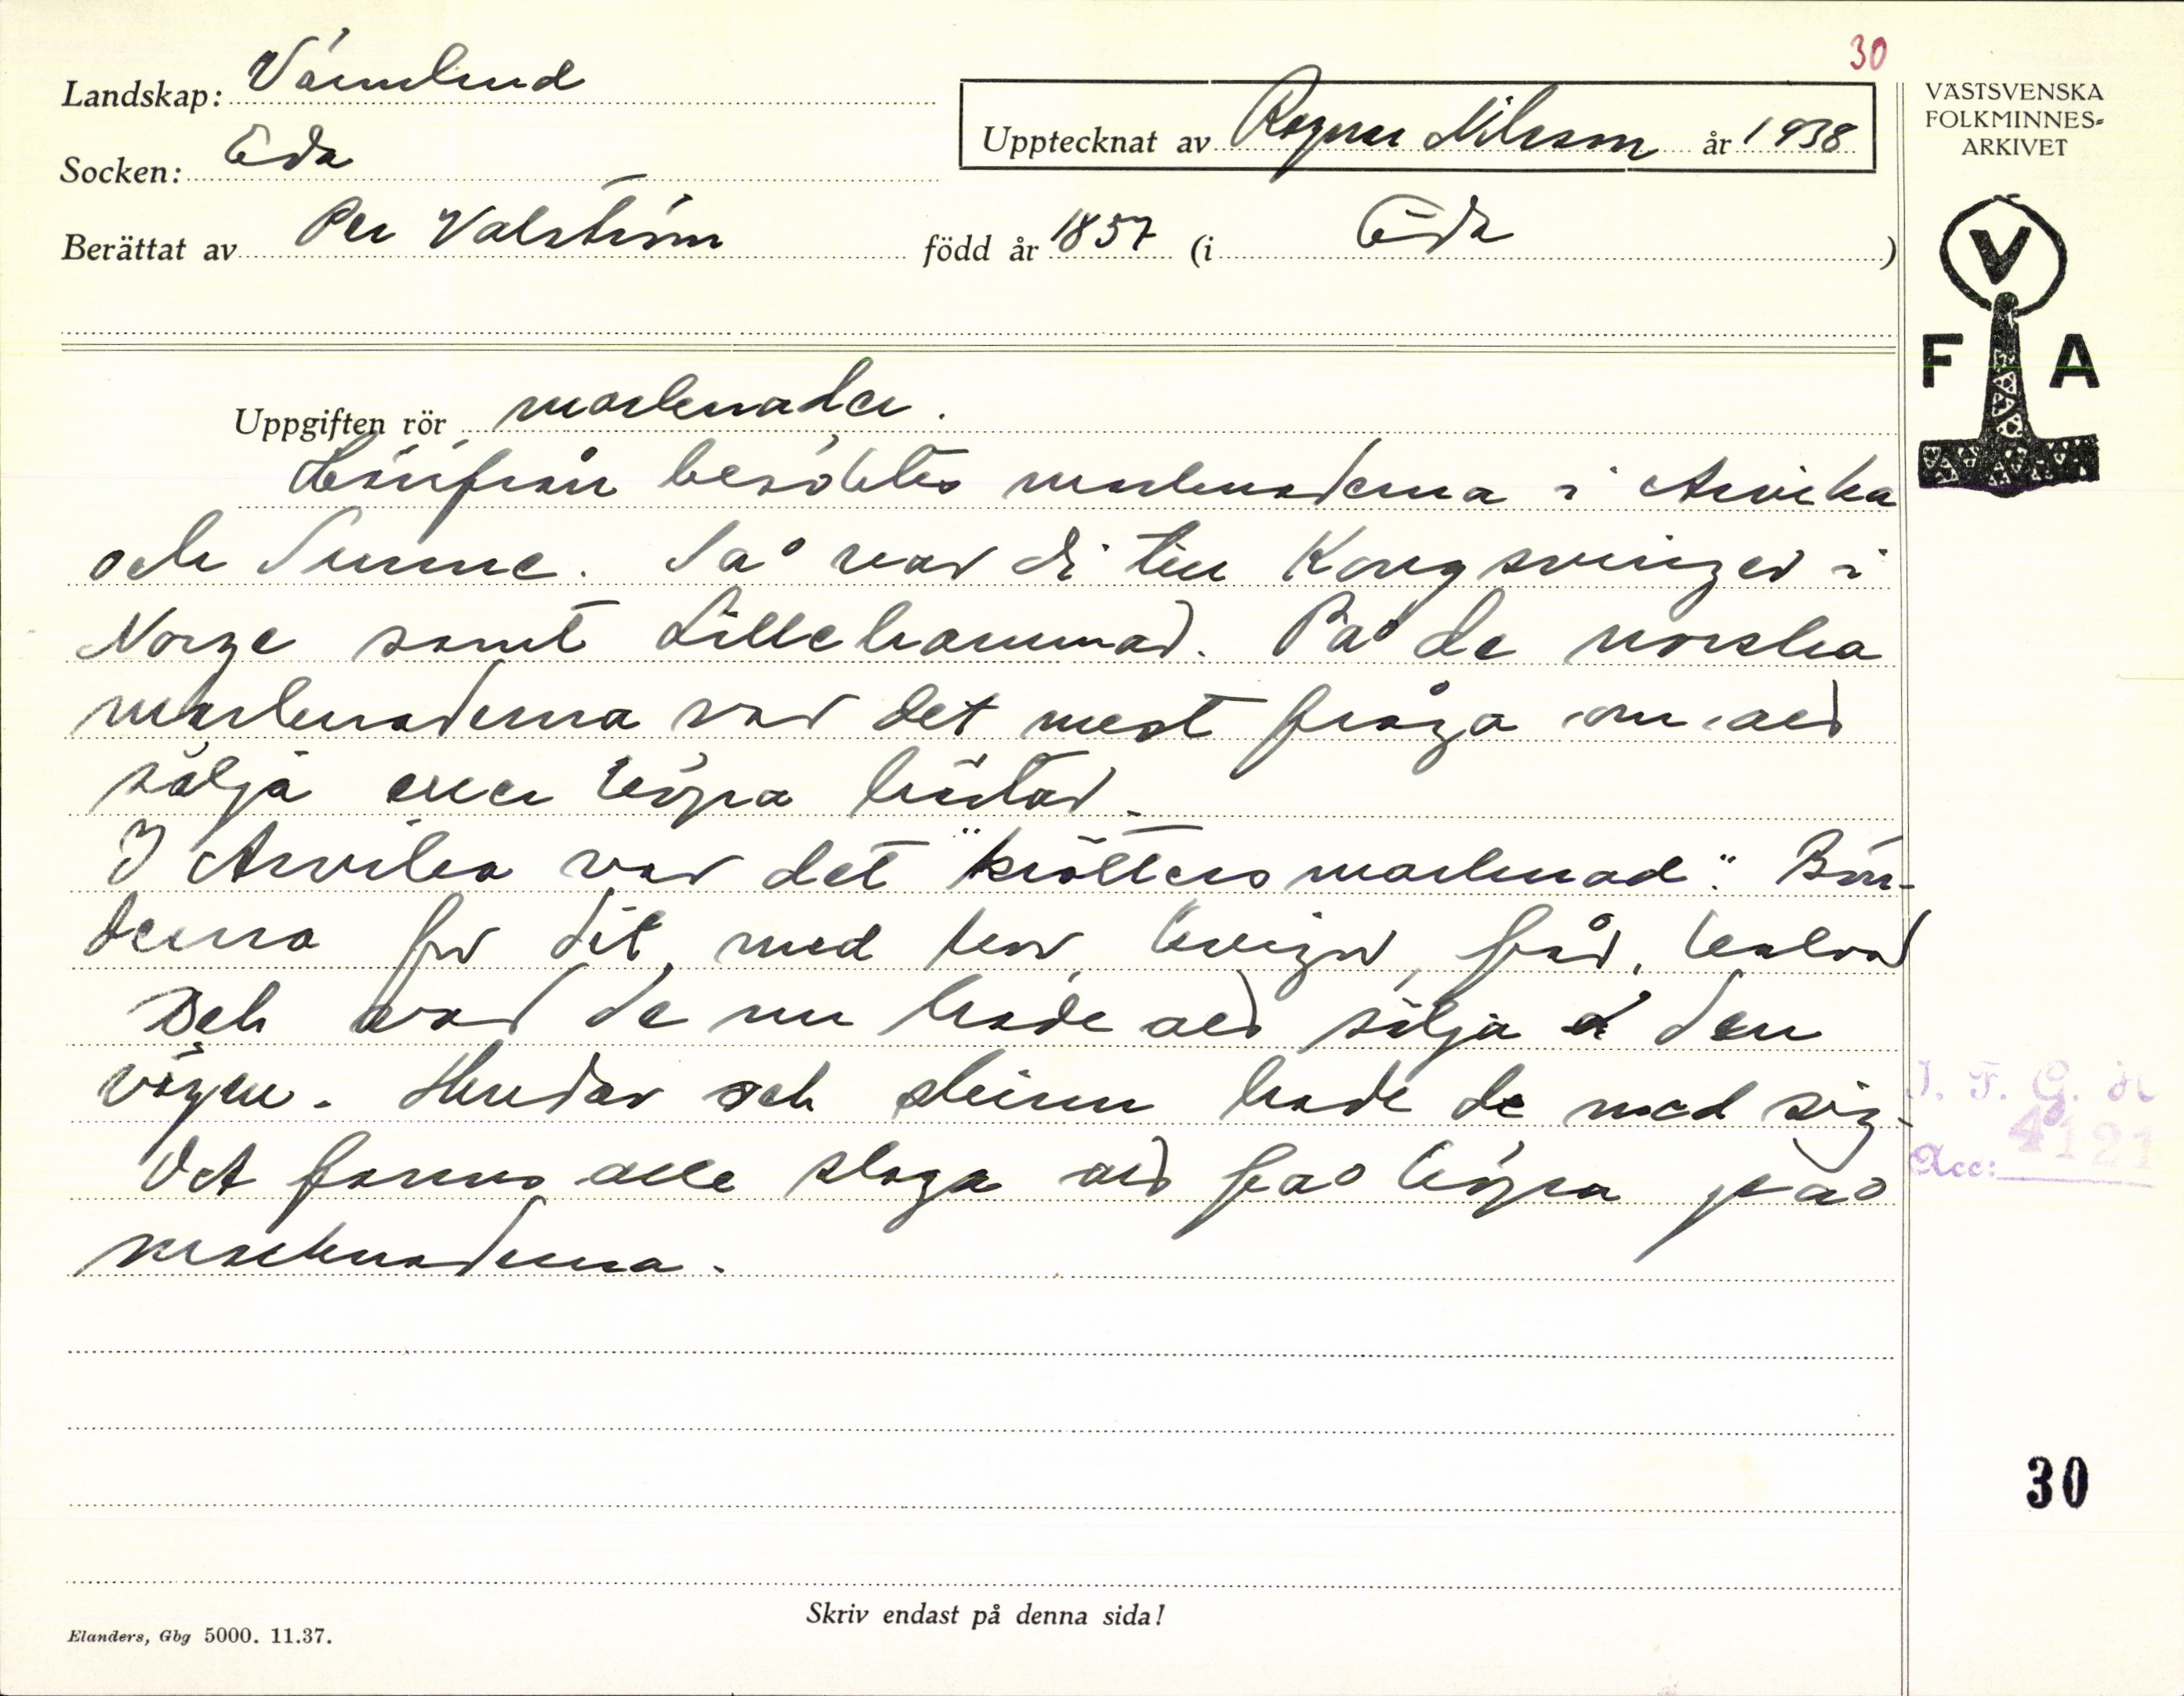 30
Landskap: Värmland
Upptecknat av Ragnar Nilsson år 1938
VÄSTSVENSKA
FOLKMINNES-
ARKIVET
Socken: Eda
Berättat av Per Valström född år 1857 (i Eda )
V
F A
Uppgiften rör marknader.
Härifrån besöktes marknaderna i Arvika
och Sunne. Så var di till Kongsvinger i
Norge samt Lillehammar. På de norska
marknaderna var det mest fråga om att
sälja eller köpa hästar.
I Arvika var det "krötters marknad". Bön-
derna for dit, med kor, kvigor, får, kalvar
och vad de nu hade att sälja i den
vägen. Hudar och skinn hade de med sig.
Det fanns alle slags att få köpa på
marknaderna.
I. F. G. H
Acc: 4121
30
Skriv endast på denna sida!
Elanders, Gbg 5000. 11.37.